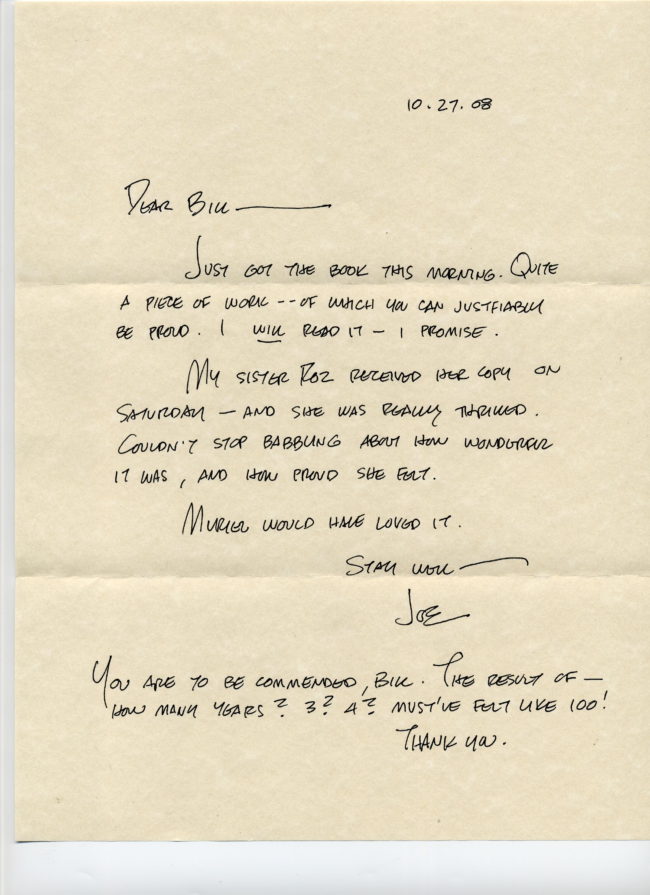 10.27.08
DEAR BILL —
JUST GOT THE BOOK THIS MORNING. QUITE
A PIECE OF WORK -- OF WHICH YOU CAN JUSTFIABLY
BE PROUD. I WILL READ IT — I PROMISE.
MY SISTER ROZ RECEIVED HER COPY ON
SATURDAY — AND SHE WAS REALLY THRILLED.
COULDN'T STOP BABBLING ABOUT HOW WONDERFUL
IT WAS, AND HOW PROUD SHE FELT.
MURIEL WOULD HAVE LOVED IT.
STAY WELL —
JOE
YOU ARE TO BE COMMENDED, BILL. THE RESULT OF —
HOW MANY YEARS? 3? 4? MUST'VE FELT LIKE 100!
THANK YOU.